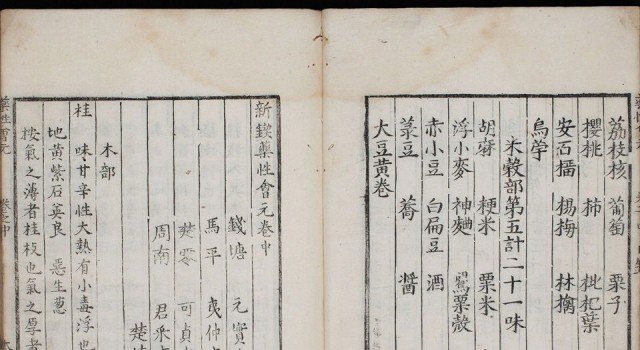 荔枝核 葡萄 栗子
櫻桃 柿 枇杷葉
安石榴 楊梅 林擒
烏芋
米穀部第五計二十一味
胡麻 粳米 粟米
浮小麥 神麯 罌粟殼
赤小豆 白扁豆 酒
菉豆 蕎 醬
大豆黃卷
新鍥藥性會元卷中
錢塘 元實
馬平
樊零 可貞
周南 君采
楚
木部
桂 味甘辛性大熱有小毒浮也
地黃紫石英良 惡生葱
按氣之薄者桂枝也氣之厚者
藥性會元 卷之中